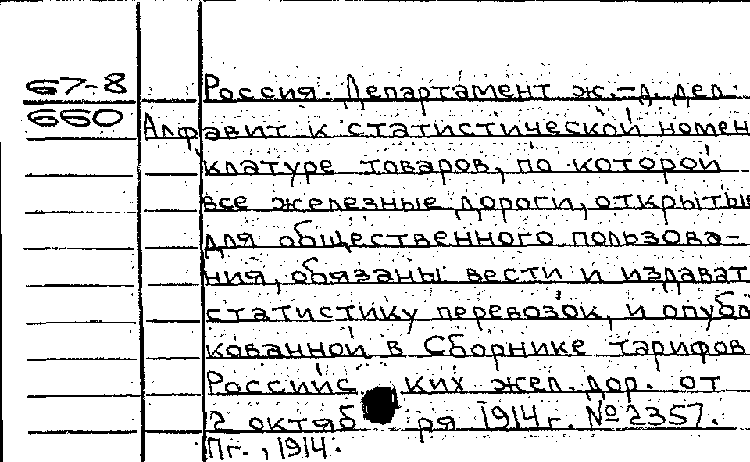 67-8 Россия. Департамент ж.-д. дел.
660 Алфавит к статистической номен
клатуре товаров, по которой
все железные дороги, открытые
для общественного пользова-
ния, обязаны вести и издават
статистику перевозок, и опубл
кованной в Сборнике тарифов
Российс ких жел. дор. от
2 октяб ря 1914 г. № 2357.
Пг., 1914.